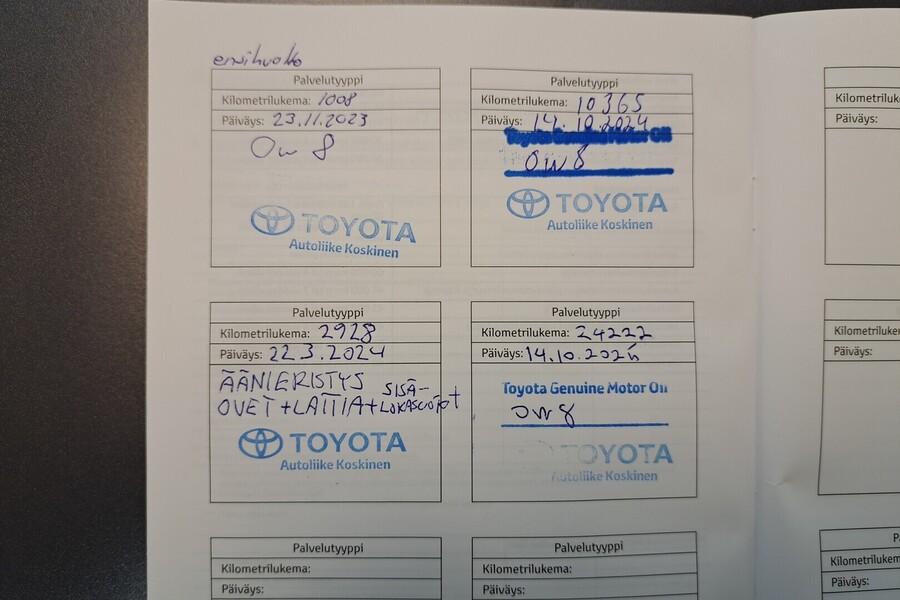 ensihuolto
Palvelutyyppi
Kilometrilukema: 1008
Päiväys: 23.11.2023
0w 8
TOYOTA
Autoliike Koskinen
Palvelutyyppi
Kilometrilukema: 10365
Päiväys: 14.10.2024
Toyota Genuine Motor Oil
0w8
TOYOTA
Autoliike Koskinen
Palvelutyyppi
Kilometrilukema: 2928
Päiväys: 22.3.2024
ÄÄNIERISTYS
OVET+LATTIA+SISÄ-
LOKASUOJAT
TOYOTA
Autoliike Koskinen
Palvelutyyppi
Kilometrilukema: 24222
Päiväys: 14.10.2025
Toyota Genuine Motor Oil
0w8
TOYOTA
Autoliike Koskinen
Palvelutyyppi
Kilometrilukema:
Päiväys:
Palvelutyyppi
Kilometrilukema:
Päiväys:
Päiväys:
Päiväys:
Päiväys: